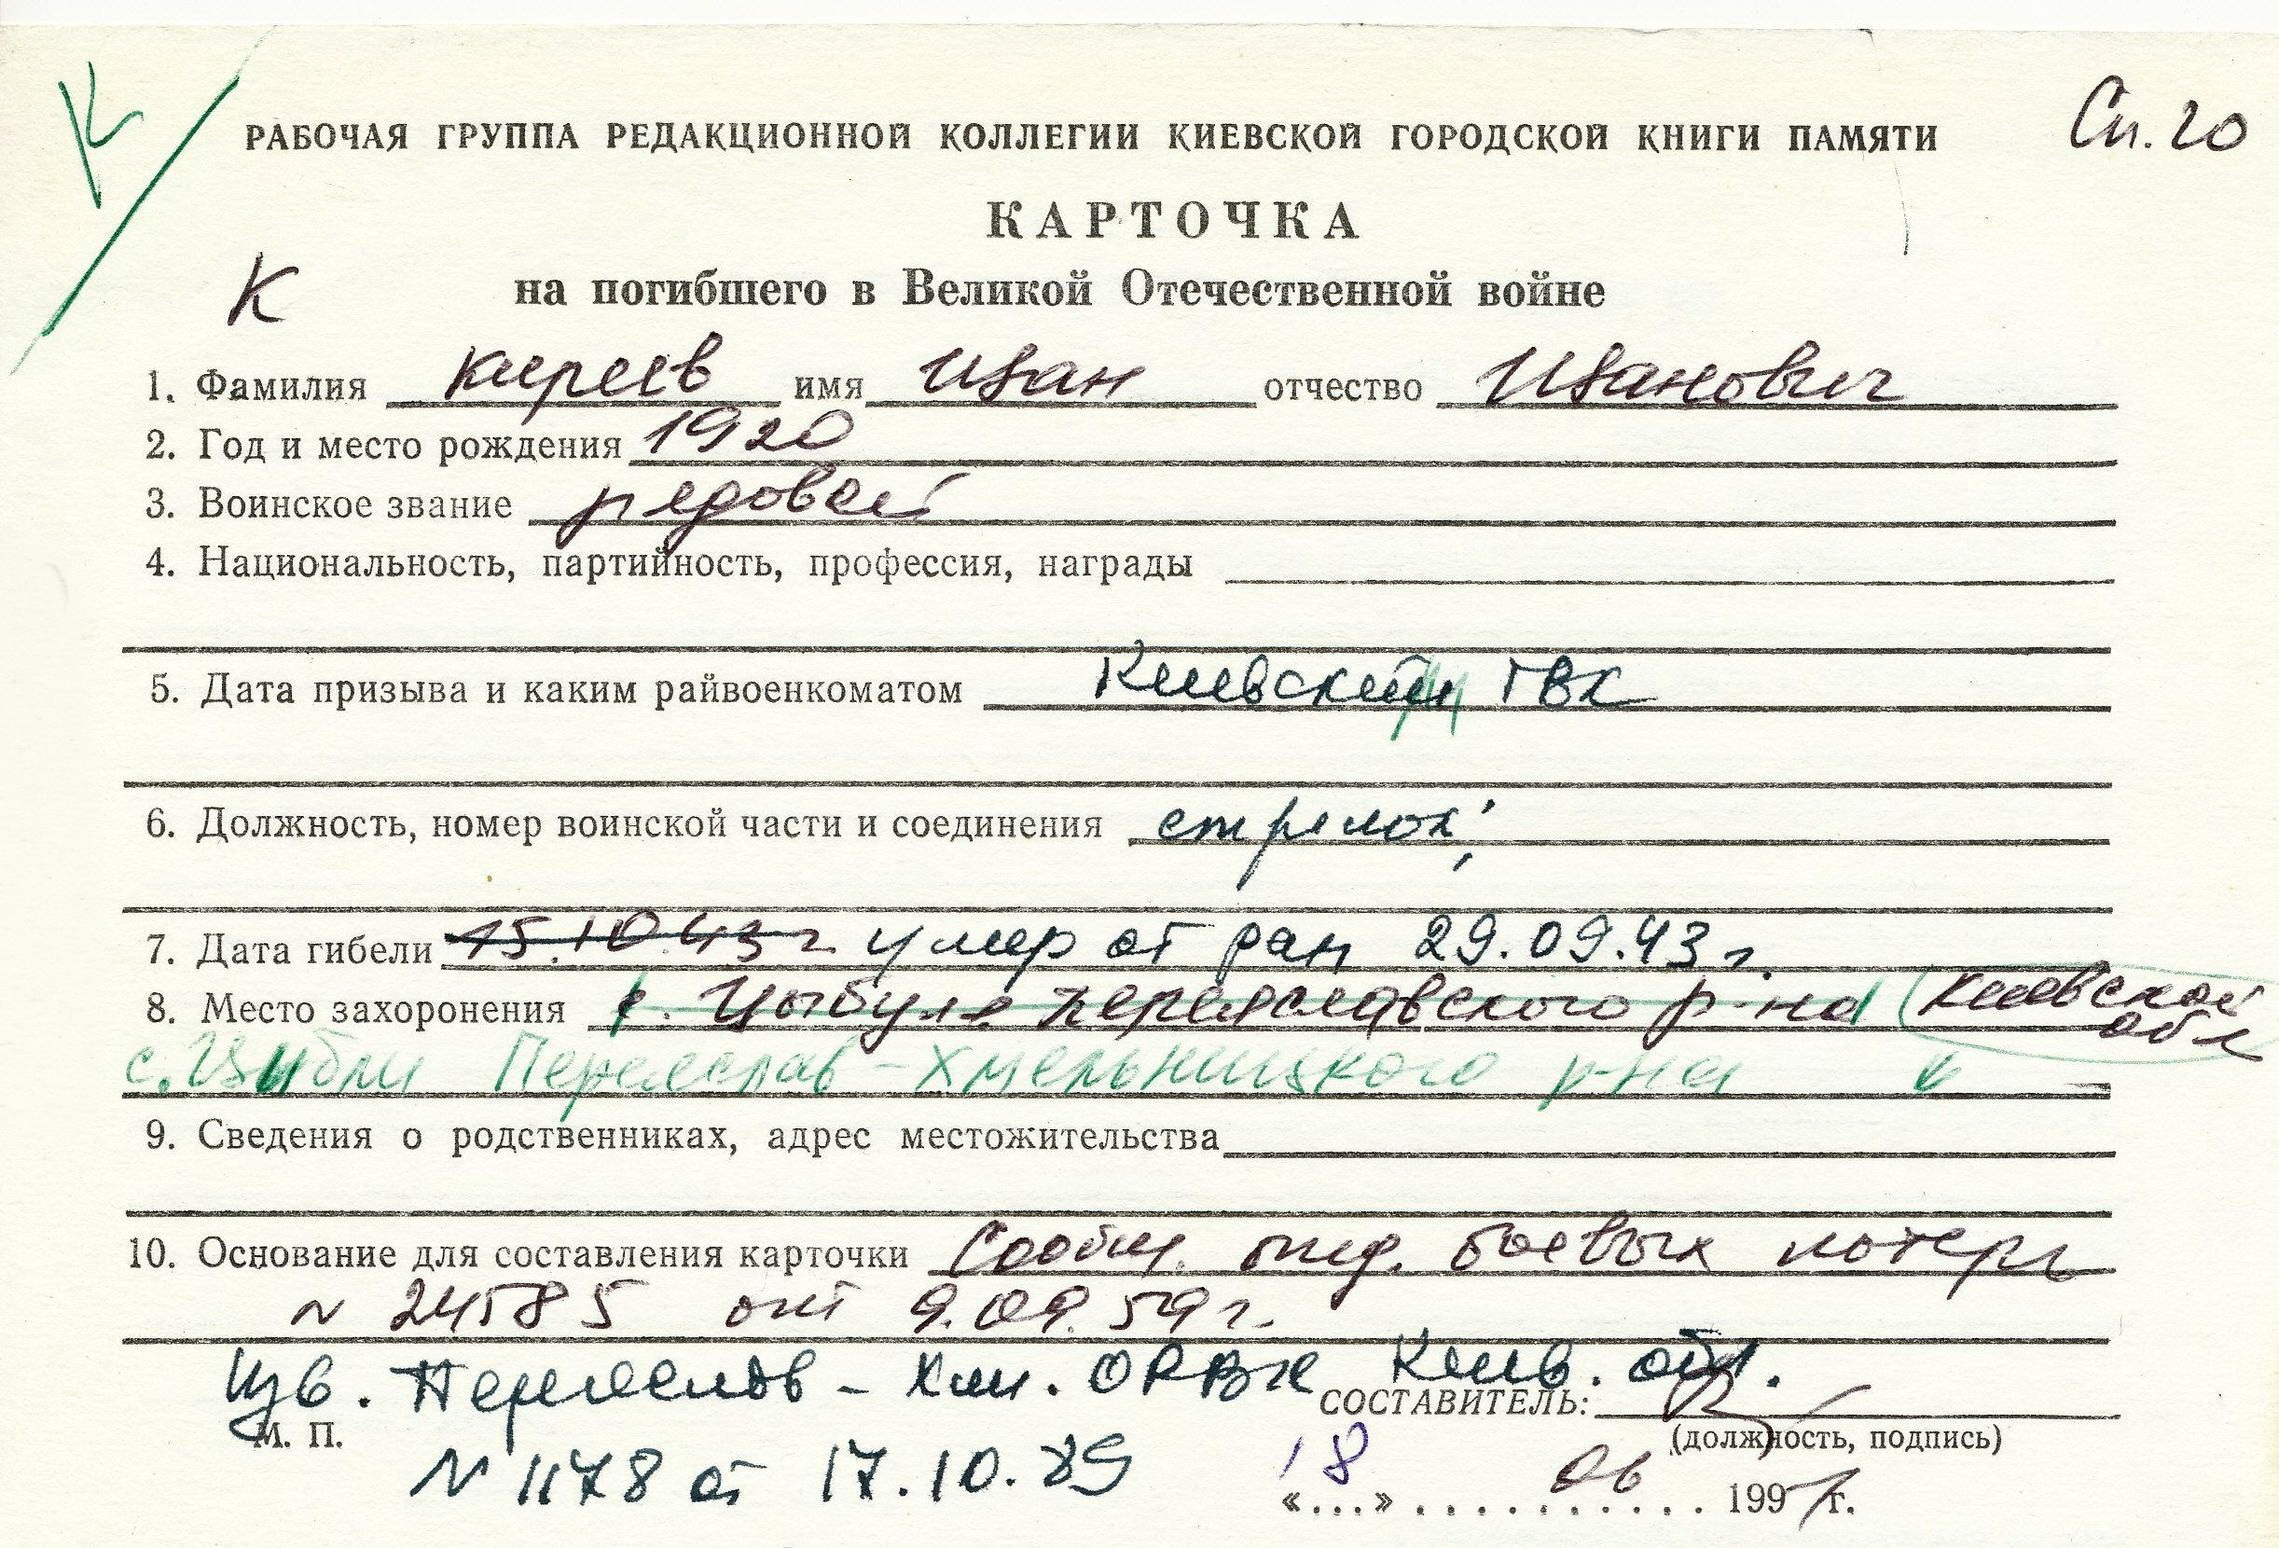 К
Сп. 20
РАБОЧАЯ ГРУППА РЕДАКЦИОННОЙ КОЛЛЕГИИ КИЕВСКОЙ ГОРОДСКОЙ КНИГИ ПАМЯТИ
КАРТОЧКА
К
на погибшего в Великой Отечественной войне
1. Фамилия Киреев имя Иван отчество Иванович
2. Год и место рождения 1920
3. Воинское звание рядовой
4. Национальность, партийность, профессия, награды
5. Дата призыва и каким райвоенкоматом Киевским ГВК
6. Должность, номер воинской части и соединения стрелок;
7. Дата гибели 15.10.43 г. умер от ран 29.09.43 г.
8. Место захоронения с. Цыбуля Переяславского р-на Киевской обл
с. Цыбли Переяслав-Хмельницкого р-на
9. Сведения о родственниках, адрес местожительства
10. Основание для составления карточки Сообщ. отд. боевых потерь
N 24585 от 9.09.59 г.
Изв. Переяслов - Хм. ОРВК Киев. обл.
СОСТАВИТЕЛЬ:
М. П.
(должность, подпись)
N 1178 от 17.10.89
«18» 06 1991 г.